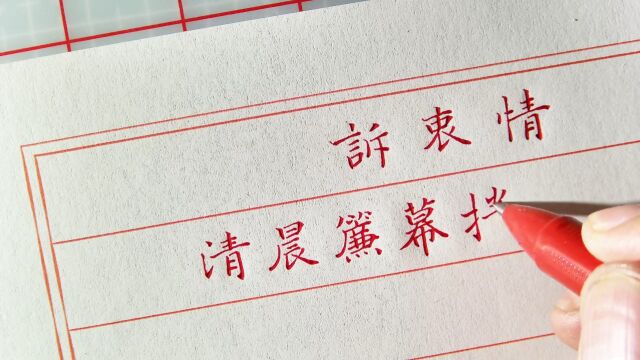 訴衷情
清晨簾幕